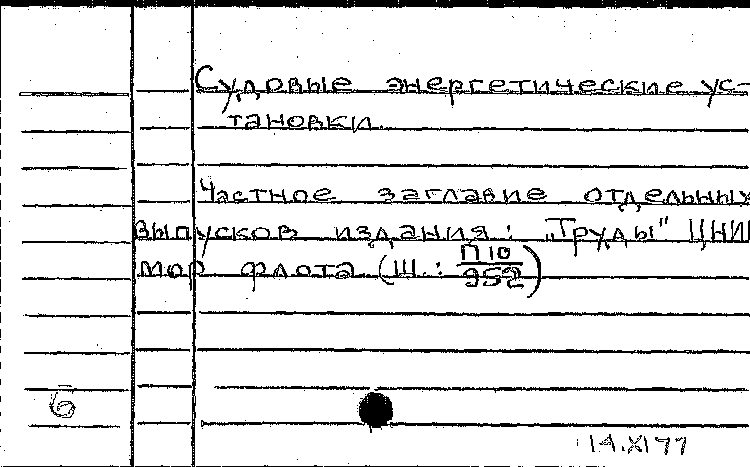 Судовые энергетические ус-
тановки.
Частное заглавие отдельных
выпусков издания: „Труды" ЦНИИ
мор флота (Ш.: П10/952)
б
14.XI 77